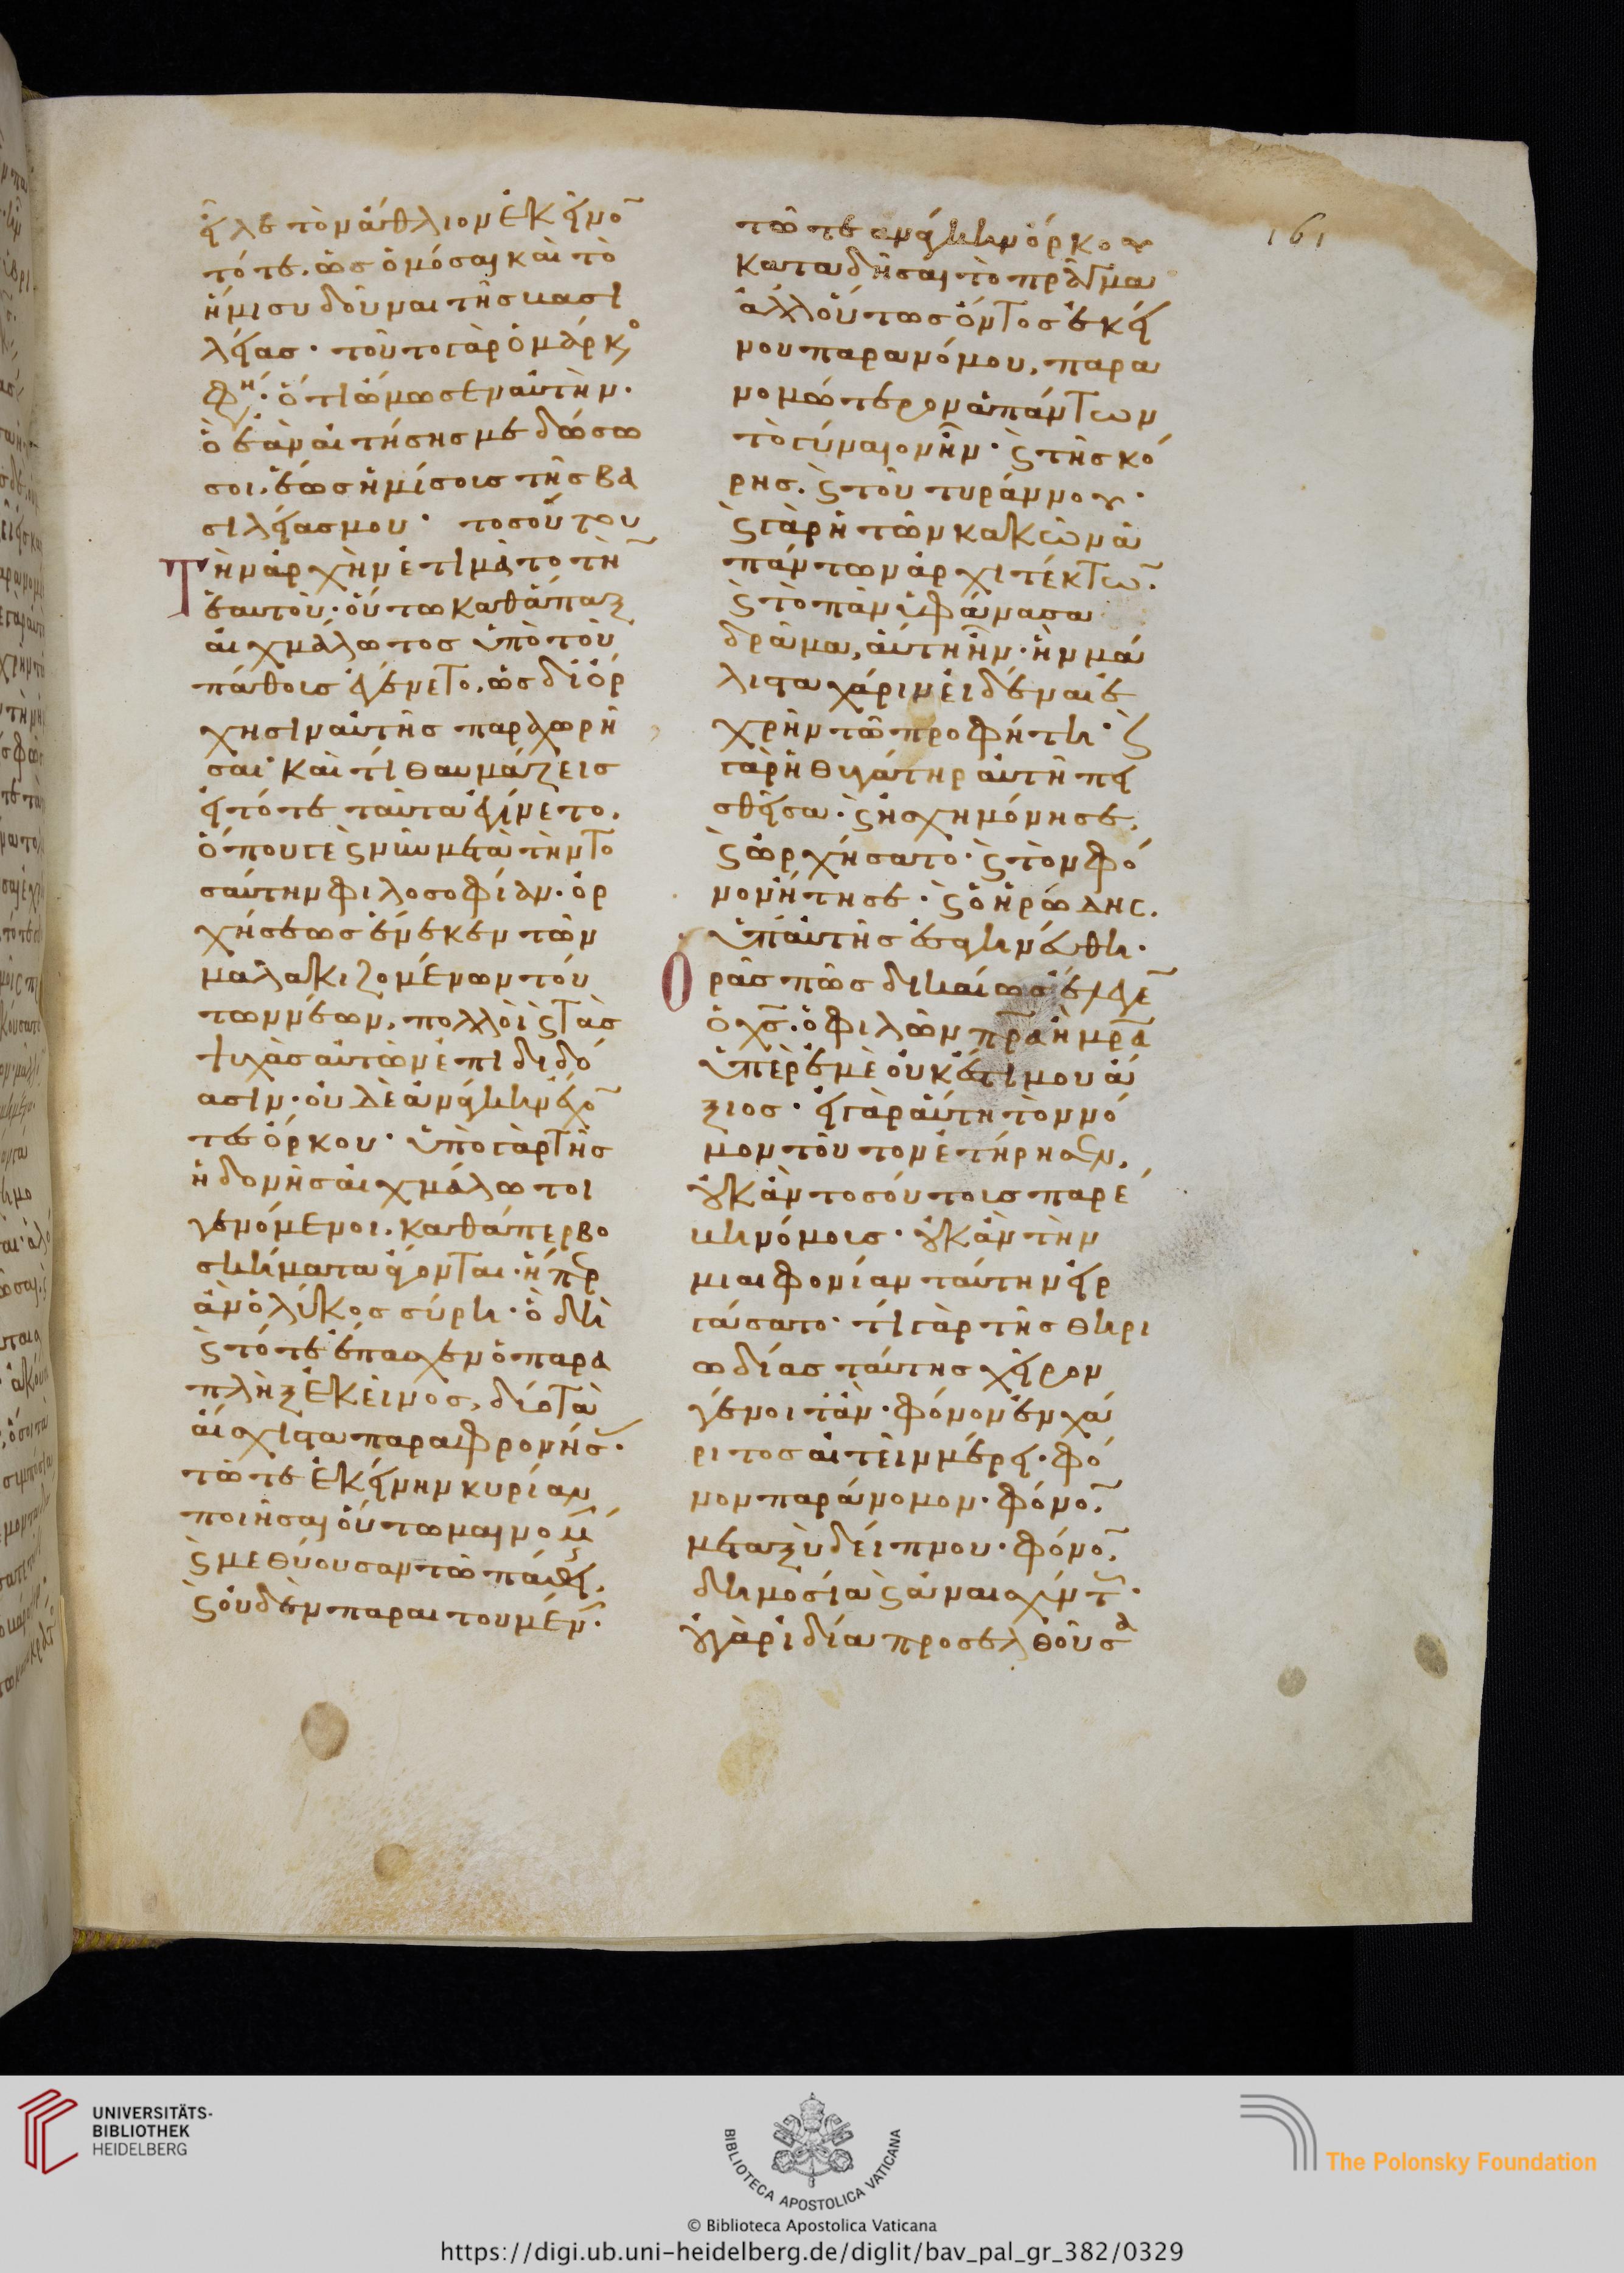 εἷλε τὸν ἄθλιον ἐκεῖνο̅
τότε. ὡς ὀμόσαι καὶ τὸ
ἥμισυ δοῦναι τῆς βασι
λείας· τοῦτο γὰρ ὁ μάρκο
φη· ὅτι ὤμωσεν αὐτὴν·
ὃ ἐὰν αἰτήσης με δώσω
σοι. ἕως ἡμίσοις τῆς βα
σιλείας μου· τοσούτου
Τὴν ἀρχὴν ἐτιμάτο τὴ̅
ἑαυτοῦ· οὕτω καθάπαξ
αἰχμάλωτος ὑπὸ τοῦ
πάθοις ἐγένετο. ὡς δι ὄρ
χησιν αὐτῆς παραχωρῆ
σαι· καὶ τί θαυμάζεις
εἰ τότε ταῦτα ἐγίνετο.
ὅπου γε ϗ νῦν μετὰ τὴν το
σαύτην φιλοσοφίαν· ὀρ
χήσεως ἕνεκεν τῶν
μαλακιζομένων τού
των νέων, πολλοὶ ϗ τὰς
ψυχὰς αὐτῶν ἐπιδιδό
ασιν· οὐδὲ ἀνάγκην ἔχο̅
τες ὅρκου· ὑπὸ γὰρ τῆς
ἡδονῆς αἰχμάλωτοι
γενόμενοι. καθάπερ βο
σκήματα ἄγονται· ἧπρ
ἂν ὁ λύκος σύρη· ὃ δὴ
ϗ τότε ἔπασχεν ὁ παρα
πλὴξ ἐκεῖνος, δύο τὰ
αἴσχιστα παραφρονήσ·
τῶ τε ἐκείνην κυρίαν
ποιῆσαι οὕτω μαινομ
ϗ μεθύουσαν τῶ πάθει.
ϗ οὐδὲν παραιτουμέν·
161
τῶ τε ἀνάγκην ὅρκου
καταδῆσαι τὸ πρᾶγμα
ἀλλ οὕτως ὄντος ἐκεί
νου παρανόμου, παρα
νομώτερον ἁπάντων
τὸ γύναιον ἦν· ϗ τῆς κό
ρης. ϗ τοῦ τυράννου·
ϗ γὰρ ἡ τῶν κακῶν ἁ
πάντων ἀρχιτέκτω̅.
ϗ τὸ πᾶν ὑφάνασα
δρᾶμα, αὕτη ἦν· ἣν μά
λιστα χάριν εἰδέναι ἐ
χρῆν τῶ προφήτη· ϗ
γὰρ ἡ θυγάτηρ αὐτῆ πει
σθεῖσα· ϗ ἠσχημόνησε.
ϗ ὠρχήσατο· ϗ τὸν φό
νον ἤτησε· ϗ ὁ ἡρώδης.
ὑπ αὐτῆς ἐσαγηνεύθη·
Ορᾶς πῶς δικαίως ἔλεγε̅
ὁ χς̅. ὁ φιλῶν πρ̅α ἢ μρ̅α
ὑπὲρ ἐμὲ οὐκ ἔστι μου ἄ
ξιος· εἰ γὰρ αὕτη τὸν νό
μον τοῦτον ἐτήρησεν,
οὐκ ἂν τοσούτοις παρέ
βη νόμοις· οὐκ ἂν τὴν
μιαιφονίαν ταύτην εἰρ
γάσατο· τί γὰρ τῆς θηρι
ωδίας ταύτης χεῖρον
γένοιτ ἂν· φόνον ἐν χά
ριτος αἰτεῖν μέρει· φό
νον παράνομον· φόνο̅.
μεταξὺ δείπνου· φόνο̅.
δημοσία ϗ ἀναισχύντ·
οὐ γὰρ ἰδία προσελθοῦσα
UNIVERSITÄTS-
BIBLIOTHEK
HEIDELBERG
BIBLIOTECA APOSTOLICA VATICANA
The Polonsky Foundation
© Biblioteca Apostolica Vaticana
https://digi.ub.uni-heidelberg.de/diglit/bav_pal_gr_382/0329